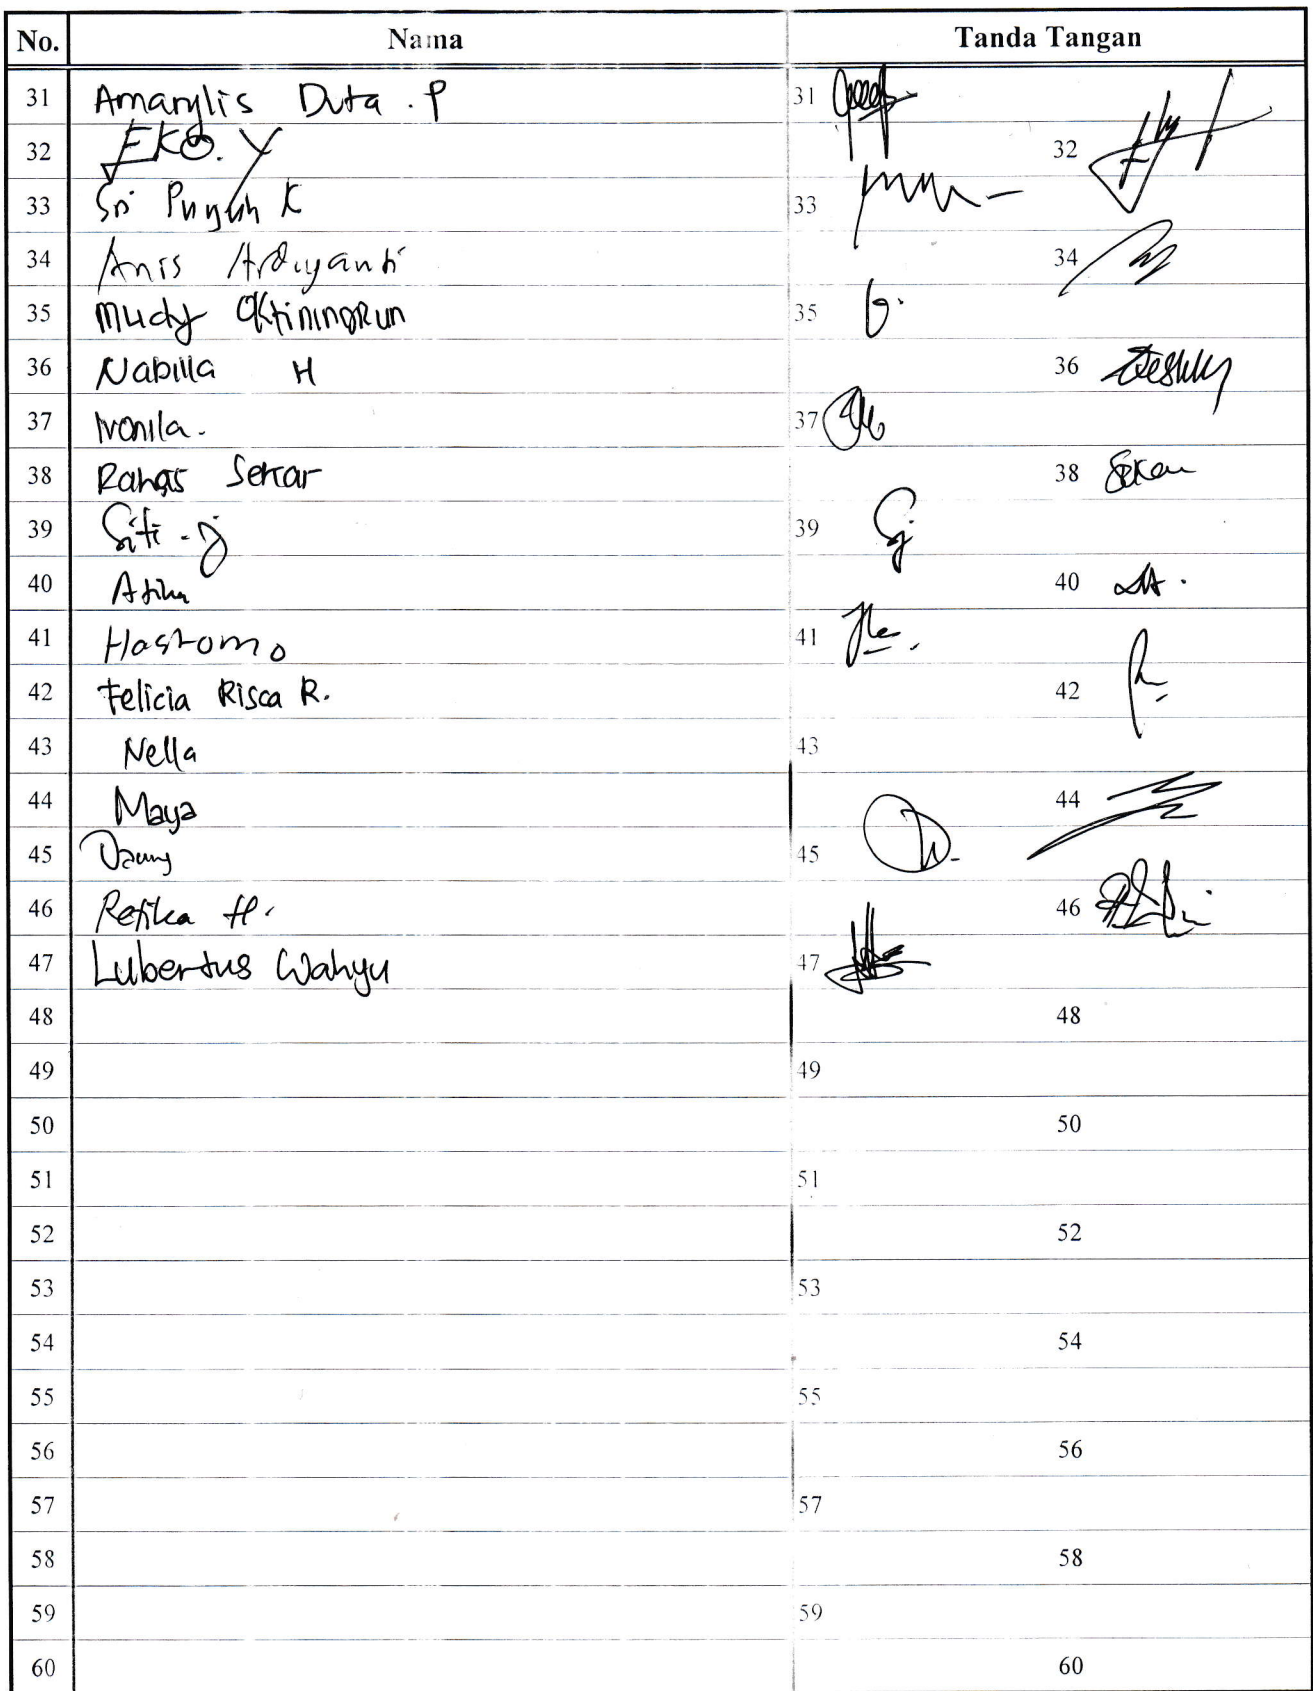 No. Nama Tanda Tangan
31 Amarylis Duta . P 31
32 EKO. Y 32
33 Sri Puguh K 33
34 Anis Ardiyanti 34
35 Mudy OktiningRun 35
36 Nabilla H 36
37 Ivonila. 37
38 Rahas Sekar 38 Sekar
39 Siti . j 39 Sj
40 Atika 40
41 Hastomo 41
42 Felicia Risca R. 42
43 Nella 43
44 Maya 44
45 45
46 Retika H. 46
47 Lubertus Wahyu 47
48 48
49 49
50 50
51 51
52 52
53 53
54 54
55 55
56 56
57 57
58 58
59 59
60 60